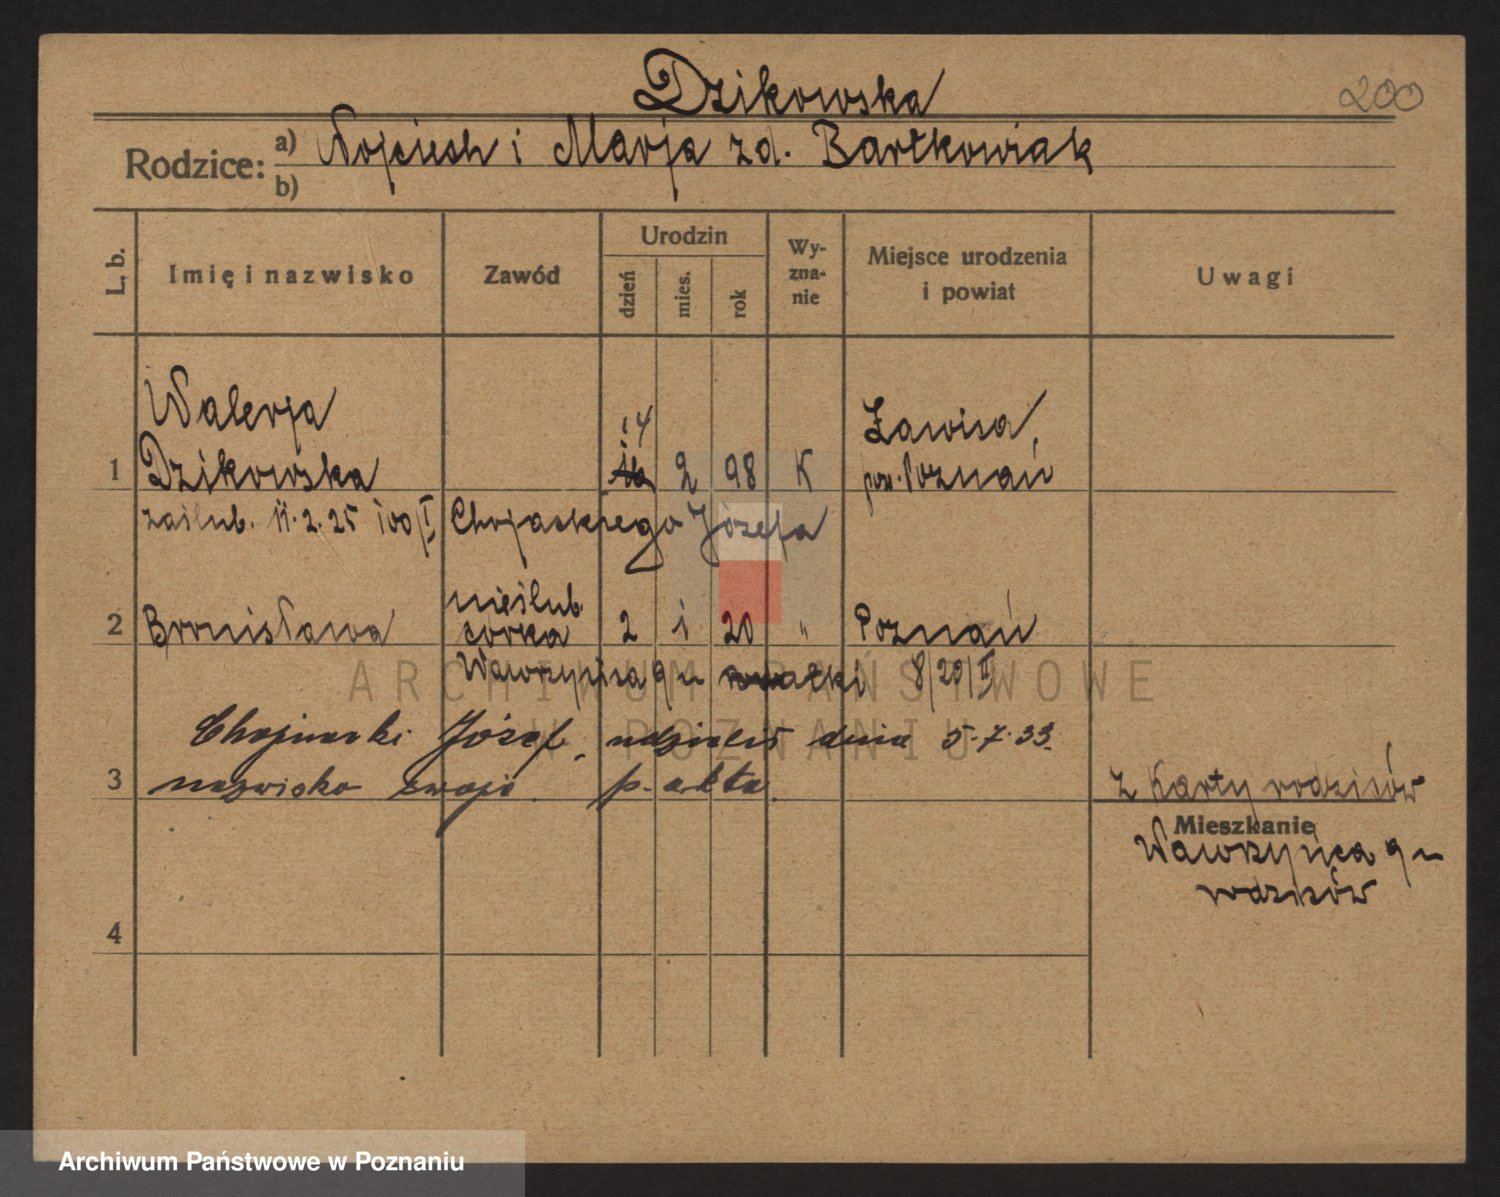 Dzikowska
200
Rodzice: a) Wojciech i Marja zd. Bartkowiak
b)
L. b.
Imię i nazwisko
Zawód
Urodzin
dzień
mies.
rok
Wy-
zna-
nie
Miejsce urodzenia
i powiat
Uwagi
Walerja
14
Żawisa,
1 Dzikowska 2 98 K pow. Poznań
zaślub. 11.2.25 100/I Chojnackiego Józefa
nieślub.
2 Bronisława córka 2 1 20 " Poznań
Wawrzyńca 9 u matki 8/20/II
ARCHIWUM PAŃSTWOWE
W POZNANIU
Chojnacki Józef, udzielił dnia 5.7.33.
3 nazwisko swoje p. akta.
Z Karty rodziców
Mieszkanie
Wawrzyńca 9 u
rodziców
4
Archiwum Państwowe w Poznaniu